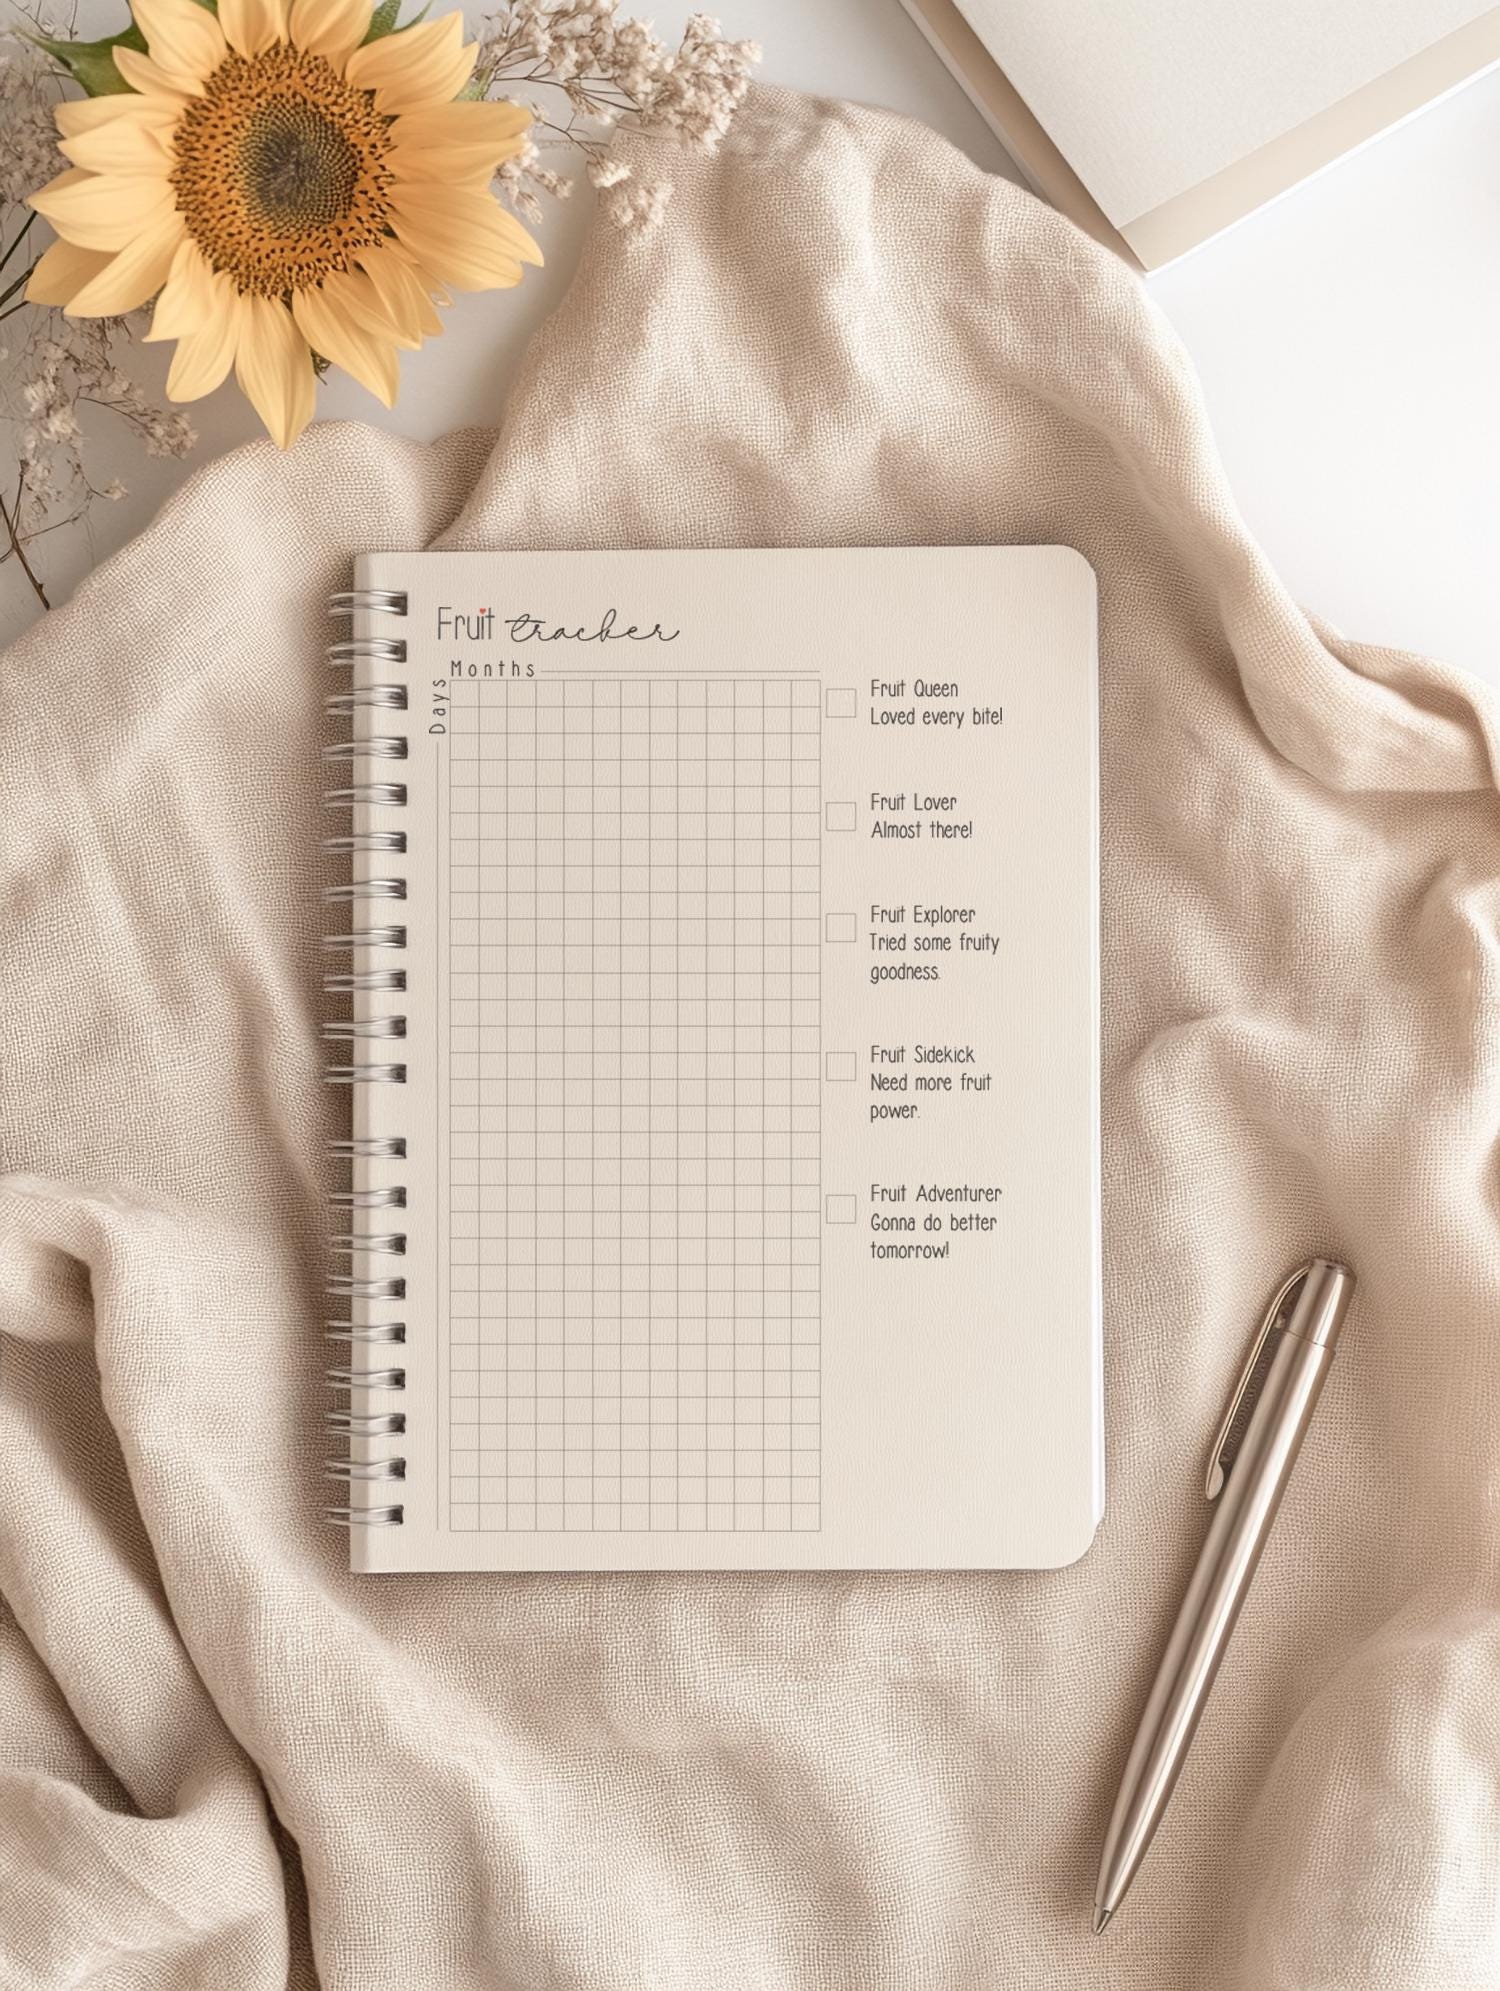 Fruit tracker
Months
Days
Fruit Queen
Loved every bite!
Fruit Lover
Almost there!
Fruit Explorer
Tried some fruity
goodness.
Fruit Sidekick
Need more fruit
power.
Fruit Adventurer
Gonna do better
tomorrow!